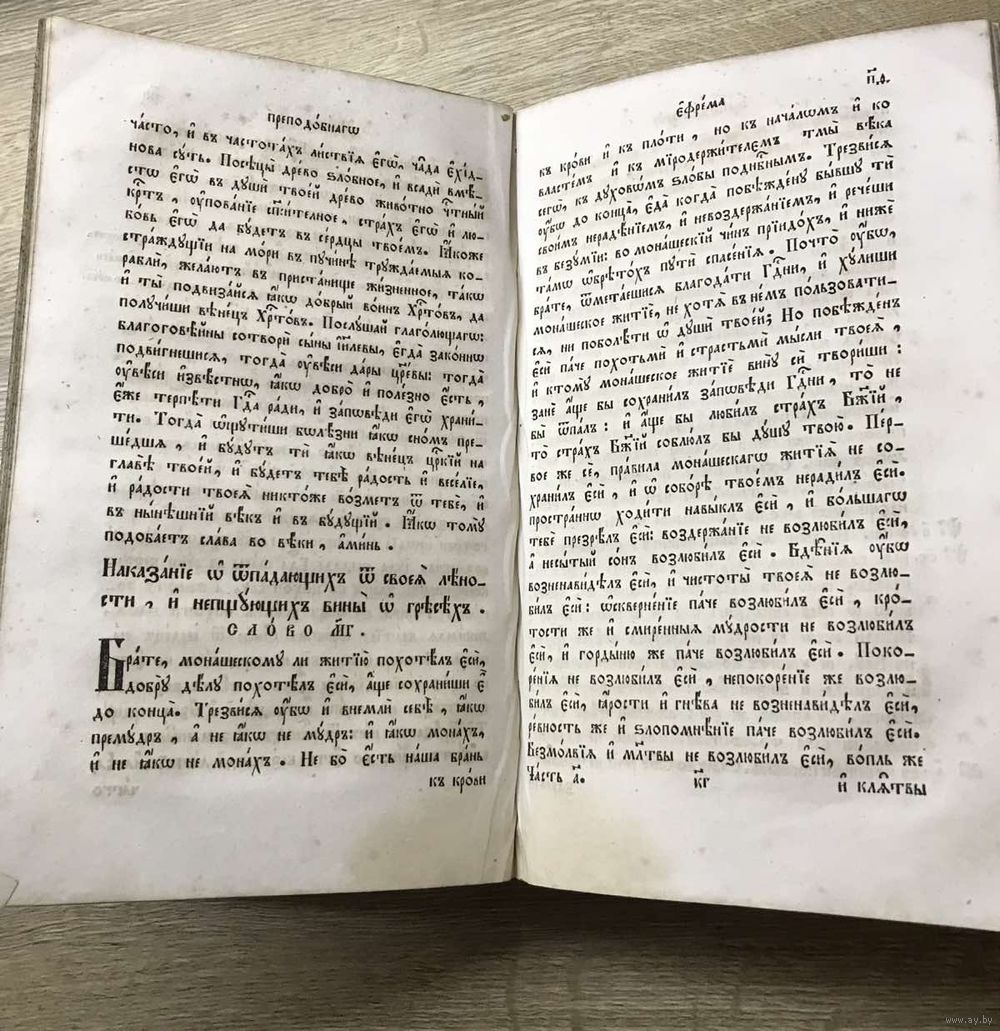 преподо́бнагѡ
ча́сто, и҆ въ часнота́хъ ли́ствїѧ є҆гѡ̀, ча̑да є҆хі́д-
нова сꙋ́ть. Посѣцы̀ дре́во ѕло́бное, и҆ всадѝ вмѣ́-
стѡ є҆гѡ̀ въ дꙋшѝ твое́й дре́во живо́тно чⷭ҇тный
крⷭ҇тъ, ᲂу҆пова́нїе сп҃си́телное, стра́хъ є҆гѡ̀ и҆ лю-
бо́вь є҆гѡ̀ да бꙋ́детъ въ се́рдцы твое́мъ. Ꙗ҆́коже
стра́ждꙋщїи на мо́ри въ пꙋчи́нѣ трꙋжда́емыѧ ко-
раблѝ, жела́ютъ въ приста́нище жи́зненное, та́кѡ
и҆ ты̀ подвиза́йсѧ ꙗ҆́кѡ до́брый во́инъ Хрⷭ҇то́въ, да
полꙋчи́ши вѣне́цъ Хрⷭ҇то́въ. Послꙋ́шай глаго́лющагѡ:
благоговѣ̑йны сотворѝ сы́ны і҆и҃лєвы, є҆гда̀ зако́ннѡ
подви́гнешисѧ, тогда̀ ᲂу҆вѣ́си да́ры црⷭ҇вы: тогда̀
ᲂу҆вѣ́си и҆звѣ́стнѡ, ꙗ҆́кѡ добро̀ и҆ поле́зно є҆́сть,
є҆́же терпѣ́ти Гдⷭ҇а ра́ди, и҆ за́пѡвѣди є҆гѡ̀ храни́-
ти. Тогда̀ ѡ҆щꙋти́ши бѡлѣ́зни ꙗ҆́кѡ сно́мъ пре-
ше́дшѧ, и҆ бꙋ́дꙋтъ тѝ ꙗ҆́кѡ вѣне́цъ црⷭ҇кїй на
главѣ̀ твое́й, и҆ бꙋ́детъ тебѣ̀ ра́дость и҆ весе́лїе,
и҆ ра́дости твоеѧ̀ никто́же во́зметъ ѿ тебѐ, и҆
въ ны́нѣшнїй вѣ́къ и҆ въ бꙋ́дꙋщїй. Ꙗ҆́кѡ томꙋ̀
подоба́етъ сла́ва во вѣ́ки, а҆ми́нь.
Наказа́нїе ѡ҆ ѿпа́дающихъ ѿ своеѧ̀ лѣ́но-
сти, и҆ непщꙋ́ющихъ вины̀ ѡ҆ грѣсѣ́хъ.
СЛО́ВО М҃Г.
Бра́те, мона́шескомꙋ ли житїю̀ похотѣ́лъ є҆сѝ,
до́брꙋ дѣ́лꙋ похотѣ́лъ є҆сѝ, а҆́ще сохрани́ши є҆̀
до конца̀. Трезви́сѧ ᲂу҆́бѡ и҆ внемлѝ себѣ̀, ꙗ҆́кѡ
премꙋ́дръ, а҆ не ꙗ҆́кѡ не мꙋ́дръ: и҆ ꙗ҆́кѡ мона́хъ,
и҆ не ꙗ҆́кѡ не мона́хъ. Не бо̀ є҆́сть на́ша бра́нь
къ кро́ви
Є҆фре́ма
п҃ѳ.
къ кро́ви и҆ къ пло́ти, но къ нача́лѡмъ и҆ ко
власте́мъ и҆ къ мїродержи́телємъ тмы̀ вѣ́ка
сегѡ̀, къ дꙋховѡ́мъ ѕло́бы поднб҇нымъ. Трезви́сѧ
ᲂу҆́бѡ до конца̀, є҆да̀ когда̀ побѣжде́нꙋ бы́вшꙋ тѝ
свои́мъ нераде́нїемъ, и҆ невоздержа́нїемъ, и҆ рече́ши
въ безꙋ́мїи: во мона́шескїй чи́нъ прїидо́хъ, и҆ нижѐ
та́мѡ ѡ҆брѣто́хъ пꙋтѝ спасе́нїѧ. Почто̀ ᲂу҆́бѡ,
бра́те, ѿмета́ешисѧ благода́ти Гдⷭ҇ни, и҆ хꙋ́лиши
мона́шеское житїѐ, не хотѧ̀ въ не́мъ по́льзовати-
сѧ, ни поболѣ́ти ѡ҆ дꙋшѝ твое́й; Но побѣжде́нъ
є҆сѝ па́че по́хотьми и҆ страстьмѝ мы́сли твоеѧ̀,
и҆ ктомꙋ̀ мона́шеское житїѐ винꙋ̀ сѝ твори́ши:
занѐ а҆́ще бы сохрани́лъ за́пѡвѣди Гдⷭ҇ни, то̀ не
бы̀ ѿпа́лъ: и҆ а҆́ще бы люби́лъ стра́хъ Бж҃їй,
то̀ стра́хъ Бж҃їй соблю́лъ бы дꙋ́шꙋ твою̀. Пе́р-
вое же сѐ, пра́вила мона́шескагѡ житїѧ̀ не со-
храни́лъ є҆сѝ, и҆ ѡ҆ собо́рѣ твое́мъ неради́лъ є҆сѝ.
простра́ннѡ ходи́ти навы́клъ є҆сѝ, и҆ бо́льшагѡ
тебѐ презрѣ́лъ є҆сѝ: воздержа́нїе не возлюби́лъ є҆сѝ,
а҆ несы́тый со́нъ возлюби́лъ є҆сѝ. Бдѣ́нїѧ ᲂу҆́бѡ
возненави́дѣлъ є҆сѝ, и҆ чистоты̀ твоеѧ̀ не возлю-
би́лъ є҆сѝ: ѡ҆скверне́нїе па́че возлюби́лъ є҆сѝ, кро́-
тости же и҆ смире́нныѧ мꙋ́дрости не возлюби́лъ
є҆сѝ, и҆ горды́ню же па́че возлюби́лъ є҆сѝ. Поко-
ре́нїѧ не возлюби́лъ є҆сѝ, непокоре́нїе же возлю-
би́лъ є҆сѝ, ꙗ҆́рости и҆ гнѣ́ва не возненави́дѣлъ є҆сѝ,
ре́вность же и҆ ѕлопомнѣ́нїе па́че возлюби́лъ є҆сѝ.
Безмо́лвїѧ и҆ мл҃твы не возлюби́лъ є҆сѝ, во́пль же
Ча́сть а҃.
к҃г
и҆ клѧ́твы
www.ay.by